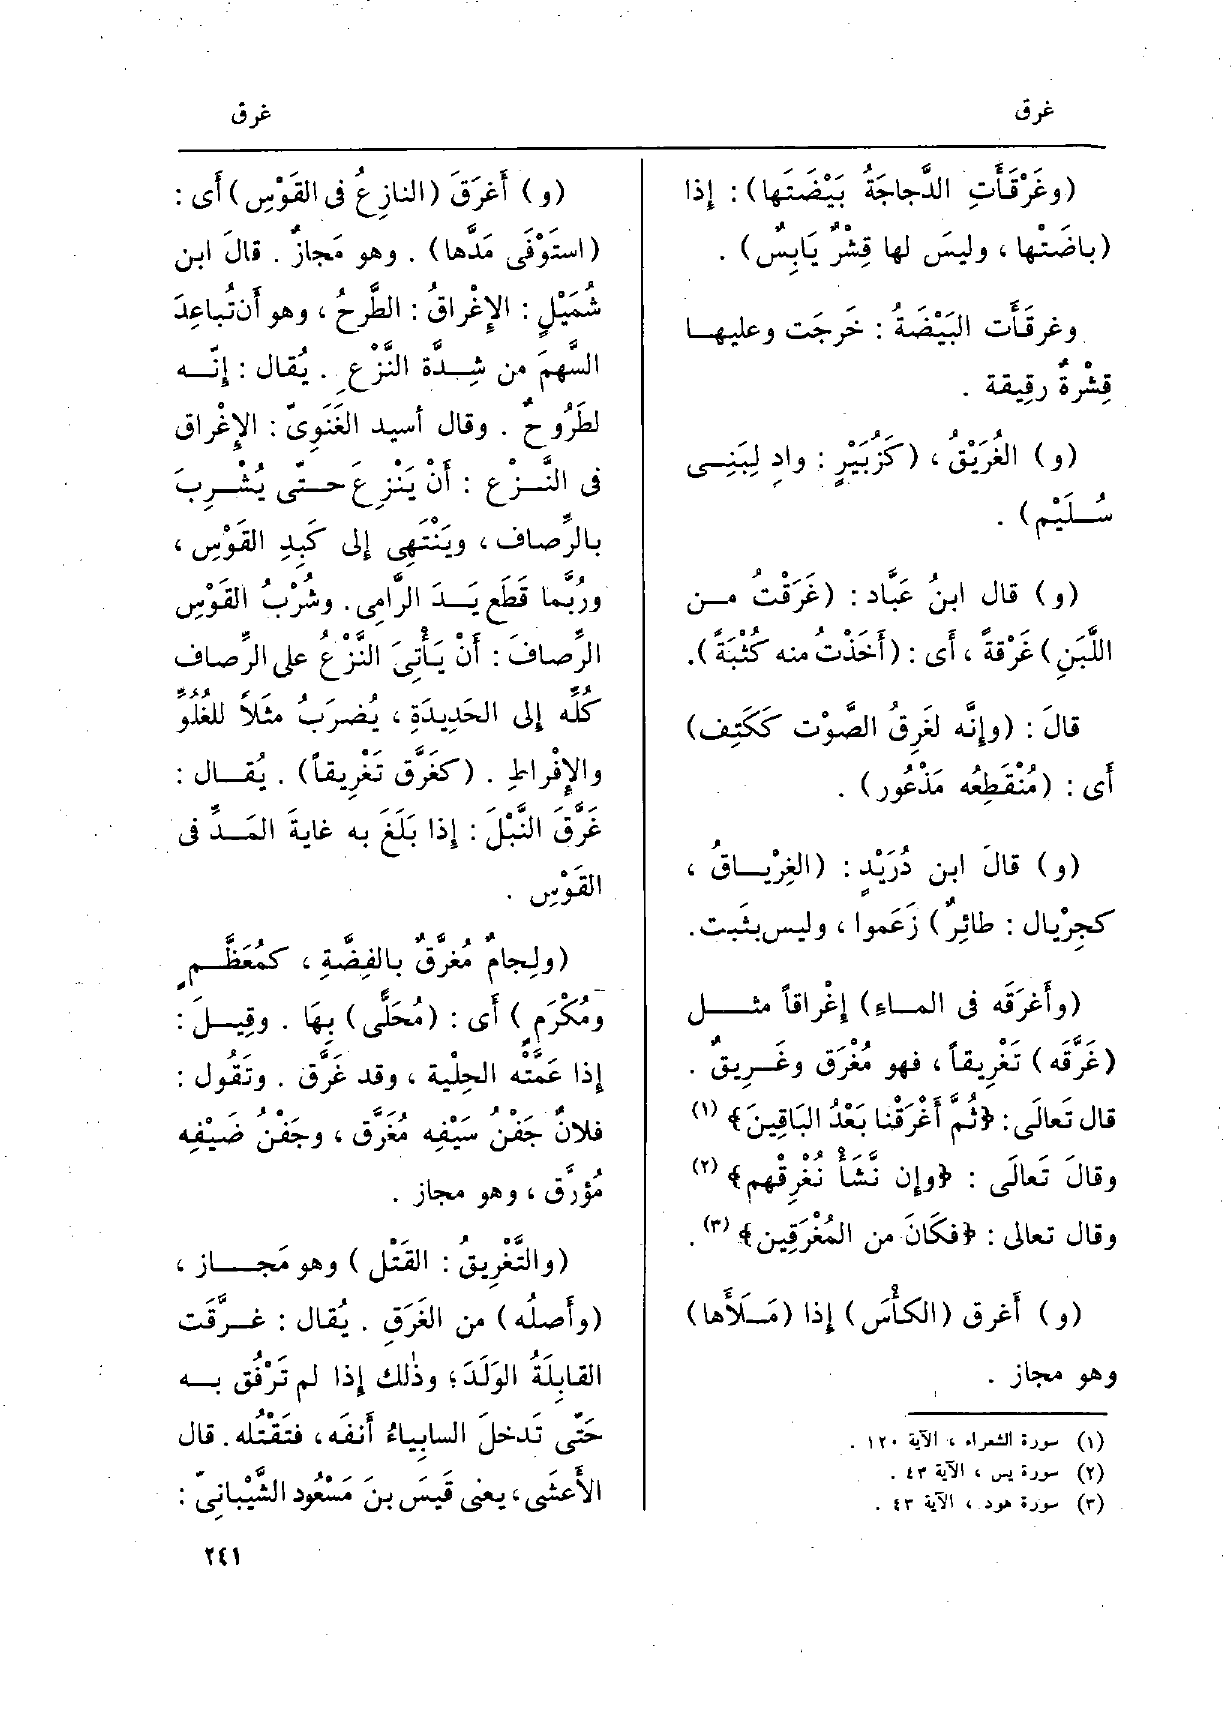 غرق
غرق
(وغَرْقَأَتِ الدَّجاجَةُ بَيْضَتَها): إذا
(باضَتْها ، وليسَ لها قِشْرٌ يَابِسٌ) .
وغرقَأَت البَيْضَةُ : خَرجَت وعليهـا
قِشْرةٌ رقِيقة .
(و) الغُرَيْقُ ، (كَزُبَيْرٍ : وادِ لِبَنِـى
سُـلَيْم) .
(و) قال ابنُ عَبَّاد : (غَرَقْتُ مـن
اللَّبَنِ) غَرْقةً ، أى : (أَخَذْتُ منه كُثْبَةً).
قالَ : (وإنَّه لغَرِقُ الصَّوْت ككَتِف)
أى : (مُنْقَطِعُه مَذْعُور) .
(و) قالَ ابن دُرَيْدٍ : (الغِرْيـاقُ ،
كجِرْيال : طائِرٌ) زَعَموا ، وليس بثَبت.
(وأَغرَقَه فى المـاءِ) إغْراقاً مثـل
(غَرَّقه) تَغْرِيقاً ، فهو مُغْرَق وغَـرِيقٌ .
قال تَعالَى : ﴿ثُمَّ أَغْرَقْنا بَعْدُ البَاقِينَ﴾ (١)
وقالَ تَعالَى : ﴿وإن نَّشَأْ نُغْرِقْهم﴾ (٢)
وقال تعالى : ﴿فكَانَ من المُغْرَقِين﴾ (٣).
(و) أَغرق (الكأْسَ) إذا (مَـلَأَها)
وهو مجاز .
(١) سورة الشعراء ، الآية ١٢٠ .
(٢) سورة يس ، الآية ٤٣ .
(٣) سورة هود ، الآية ٤٣ .
(و) أَغرَقَ (النازِعُ فى القَوْسِ) أَى :
(استَوْفَى مَدَّها) . وهو مَجازٌ . قالَ ابن
شُمَيْلٍ : الإِغْراقُ : الطَّرحُ ، وهو أَن تُباعِدَ
السَّهمَ من شِـدَّة النَّزْعِ . يُقال : إنّـه
لطَرُوحٌ . وقال أسيد الغَنَوِىّ : الإِغْراق
فى النَّـزْع : أَنْ يَنْزِعَ حـتّى يُشْـرِبَ
بالرِّصاف ، ويَنْتَهِى إلى كَبِدِ القَوْسِ ،
ورُبَّما قَطَع يَـدَ الرَّامِى . وشُرْبُ القَوْسِ
الرِّصافَ : أَنْ يَأْتِىَ النَّزْعُ على الرِّصاف
كُلِّه إلى الحَدِيدَةِ ، يُضرَبُ مثَلاً للغُلُوِّ
والإِفْراطِ . (كغَرَّق تَغْرِيقاً) . يُقـال :
غَرَّقَ النَّبْلَ : إذا بَلَغَ به غايةَ المَـدِّ فى
القَوْسِ .
(ولِجامٌ مُغرَّقٌ بالفِضَّةِ ، كمُعَظَّـمٍ
ومُكْرَمٍ ) أَى : (مُحَلَّى) بِهَا . وقِيـلَ :
إذا عَمَّتْه الحِلْية ، وقد غَرَّق . وتَقُول :
فلانٌ جَفْنُ سَيْفِه مُغَرَّق ، وجَفْنُ ضَيْفِه
مُؤرَّق ، وهو مجاز .
(والتَّغْرِيقُ : القَتْل) وهو مَجـاز ،
(وأَصلُه) من الغَرَقِ . يُقال : غـرَّقَت
القابِلَةُ الوَلَدَ؛ وذٰلك إذا لم تَرْفُق بـه
حَتّى تَدخلَ السابِياءُ أَنفَه، فتَقْتُله. قال
الأَعشَى، يعنى قَيسَ بنَ مَسْعُود الشَّيْبانِىّ :
٢٤١